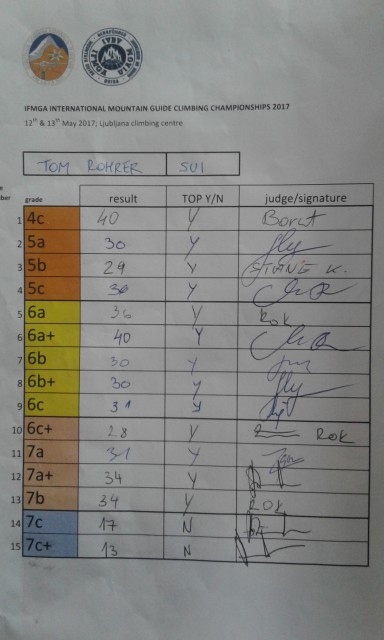 IFMGA INTERNATIONAL MOUNTAIN GUIDE CLIMBING CHAMPIONSHIPS 2017
12th & 13th May 2017; Ljubljana climbing centre
TOM ROHRER SUI
grade result TOP Y/N judge/signature
1 4c 40 Y Borut
2 5a 30 Y
3 5b 29 Y STANE K.
4 5c 30 Y
5 6a 36 Y ROK
6 6a+ 40 Y
7 6b 30 Y
8 6b+ 30 Y
9 6c 31 Y
10 6c+ 28 Y ROK
11 7a 31 Y
12 7a+ 34 Y
13 7b 34 Y ROK
14 7c 17 N
15 7c+ 13 N